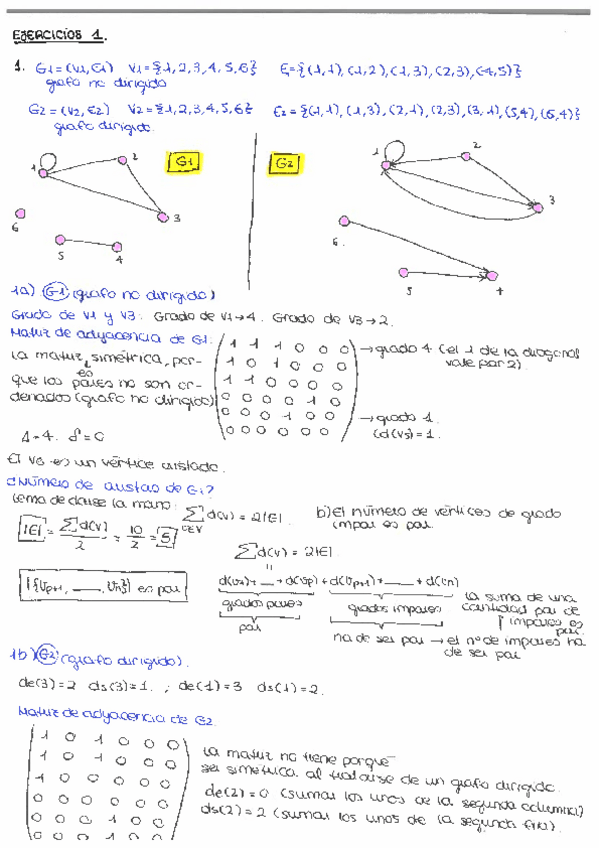 EJERCICIOS 1.
1. G1=(V1,E1) V1={1,2,3,4,5,6} E={(1,1),(1,2),(1,3),(2,3),(4,5)}
grafo no dirigido
G2=(V2,E2) V2={1,2,3,4,5,6} E2={(1,1),(1,3),(2,1),(2,3),(3,1),(5,4),(6,4)}
grafo dirigido.
1 2 G1 3 6 5 4
G2 1 2 3 6. 5 4
1a) G1 (grafo no dirigido)
Grado de V1 y V3: Grado de V1→4. Grado de V3→2.
Matriz de adyacencia de G1:
La matriz es simétrica, por-
que los pares no son or-
denados (grafo no dirigido)
1 1 1 0 0 0 →grado 4 (el 1 de la diagonal
vale por 2).
1 0 1 0 0 0
1 1 0 0 0 0
0 0 0 0 1 0
0 0 0 1 0 0 →grado 1.
0 0 0 0 0 0 (d(V5)=1.
Δ=4. δ=0
El V6 es un vértice aislado.
¿Número de aristas de G1?
Lema de darse la mano: Σ d(v) = 2|E|.
v∈V
|E| = Σd(v) / 2 = 10 / 2 = 5
b) El número de vértices de grado
impar es par.
Σd(v) = 2|E|.
"
|{Vp+1, __, Vn}| es par
+ __ + d(Vp) + d(Vp+1) + __ + d(Vn)
grados pares grados impares
par
La suma de una
cantidad par de
impares es
par.
ha de ser par → el nº de impares ha
de ser par
1b) G2 (grafo dirigido).
de(3)=2 ds(3)=1. ; de(1)=3 ds(1)=2.
Matriz de adyacencia de G2
1 0 1 0 0 0
1 0 1 0 0 0
1 0 0 0 0 0
0 0 0 0 0 0
0 0 0 1 0 0
0 0 0 1 0 0
La matriz no tiene porqué
ser simétrica al tratarse de un grafo dirigido.
de(2)=0 (sumar los unos de la segunda columna)
ds(2)=2 (sumar los unos de la segunda fila).